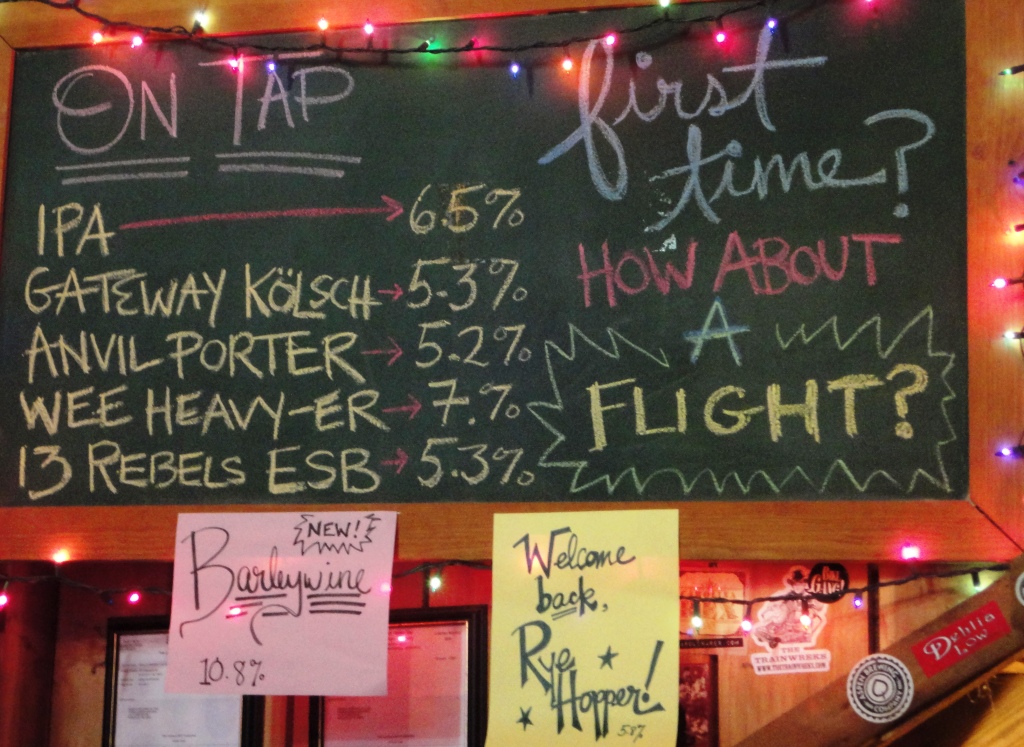 ON TAP
IPA → 6.5%
GATEWAY KÖLSCH → 5.3%
ANVIL PORTER → 5.2%
WEE HEAVY-ER → 7.%
13 REBELS ESB → 5.3%
first
time?
HOW ABOUT
A
FLIGHT?
NEW!
Barleywine
10.8%
Welcome
back,
Rye
Hopper!
5.8%
THE
TRAINWREKS
Dehlia
Low